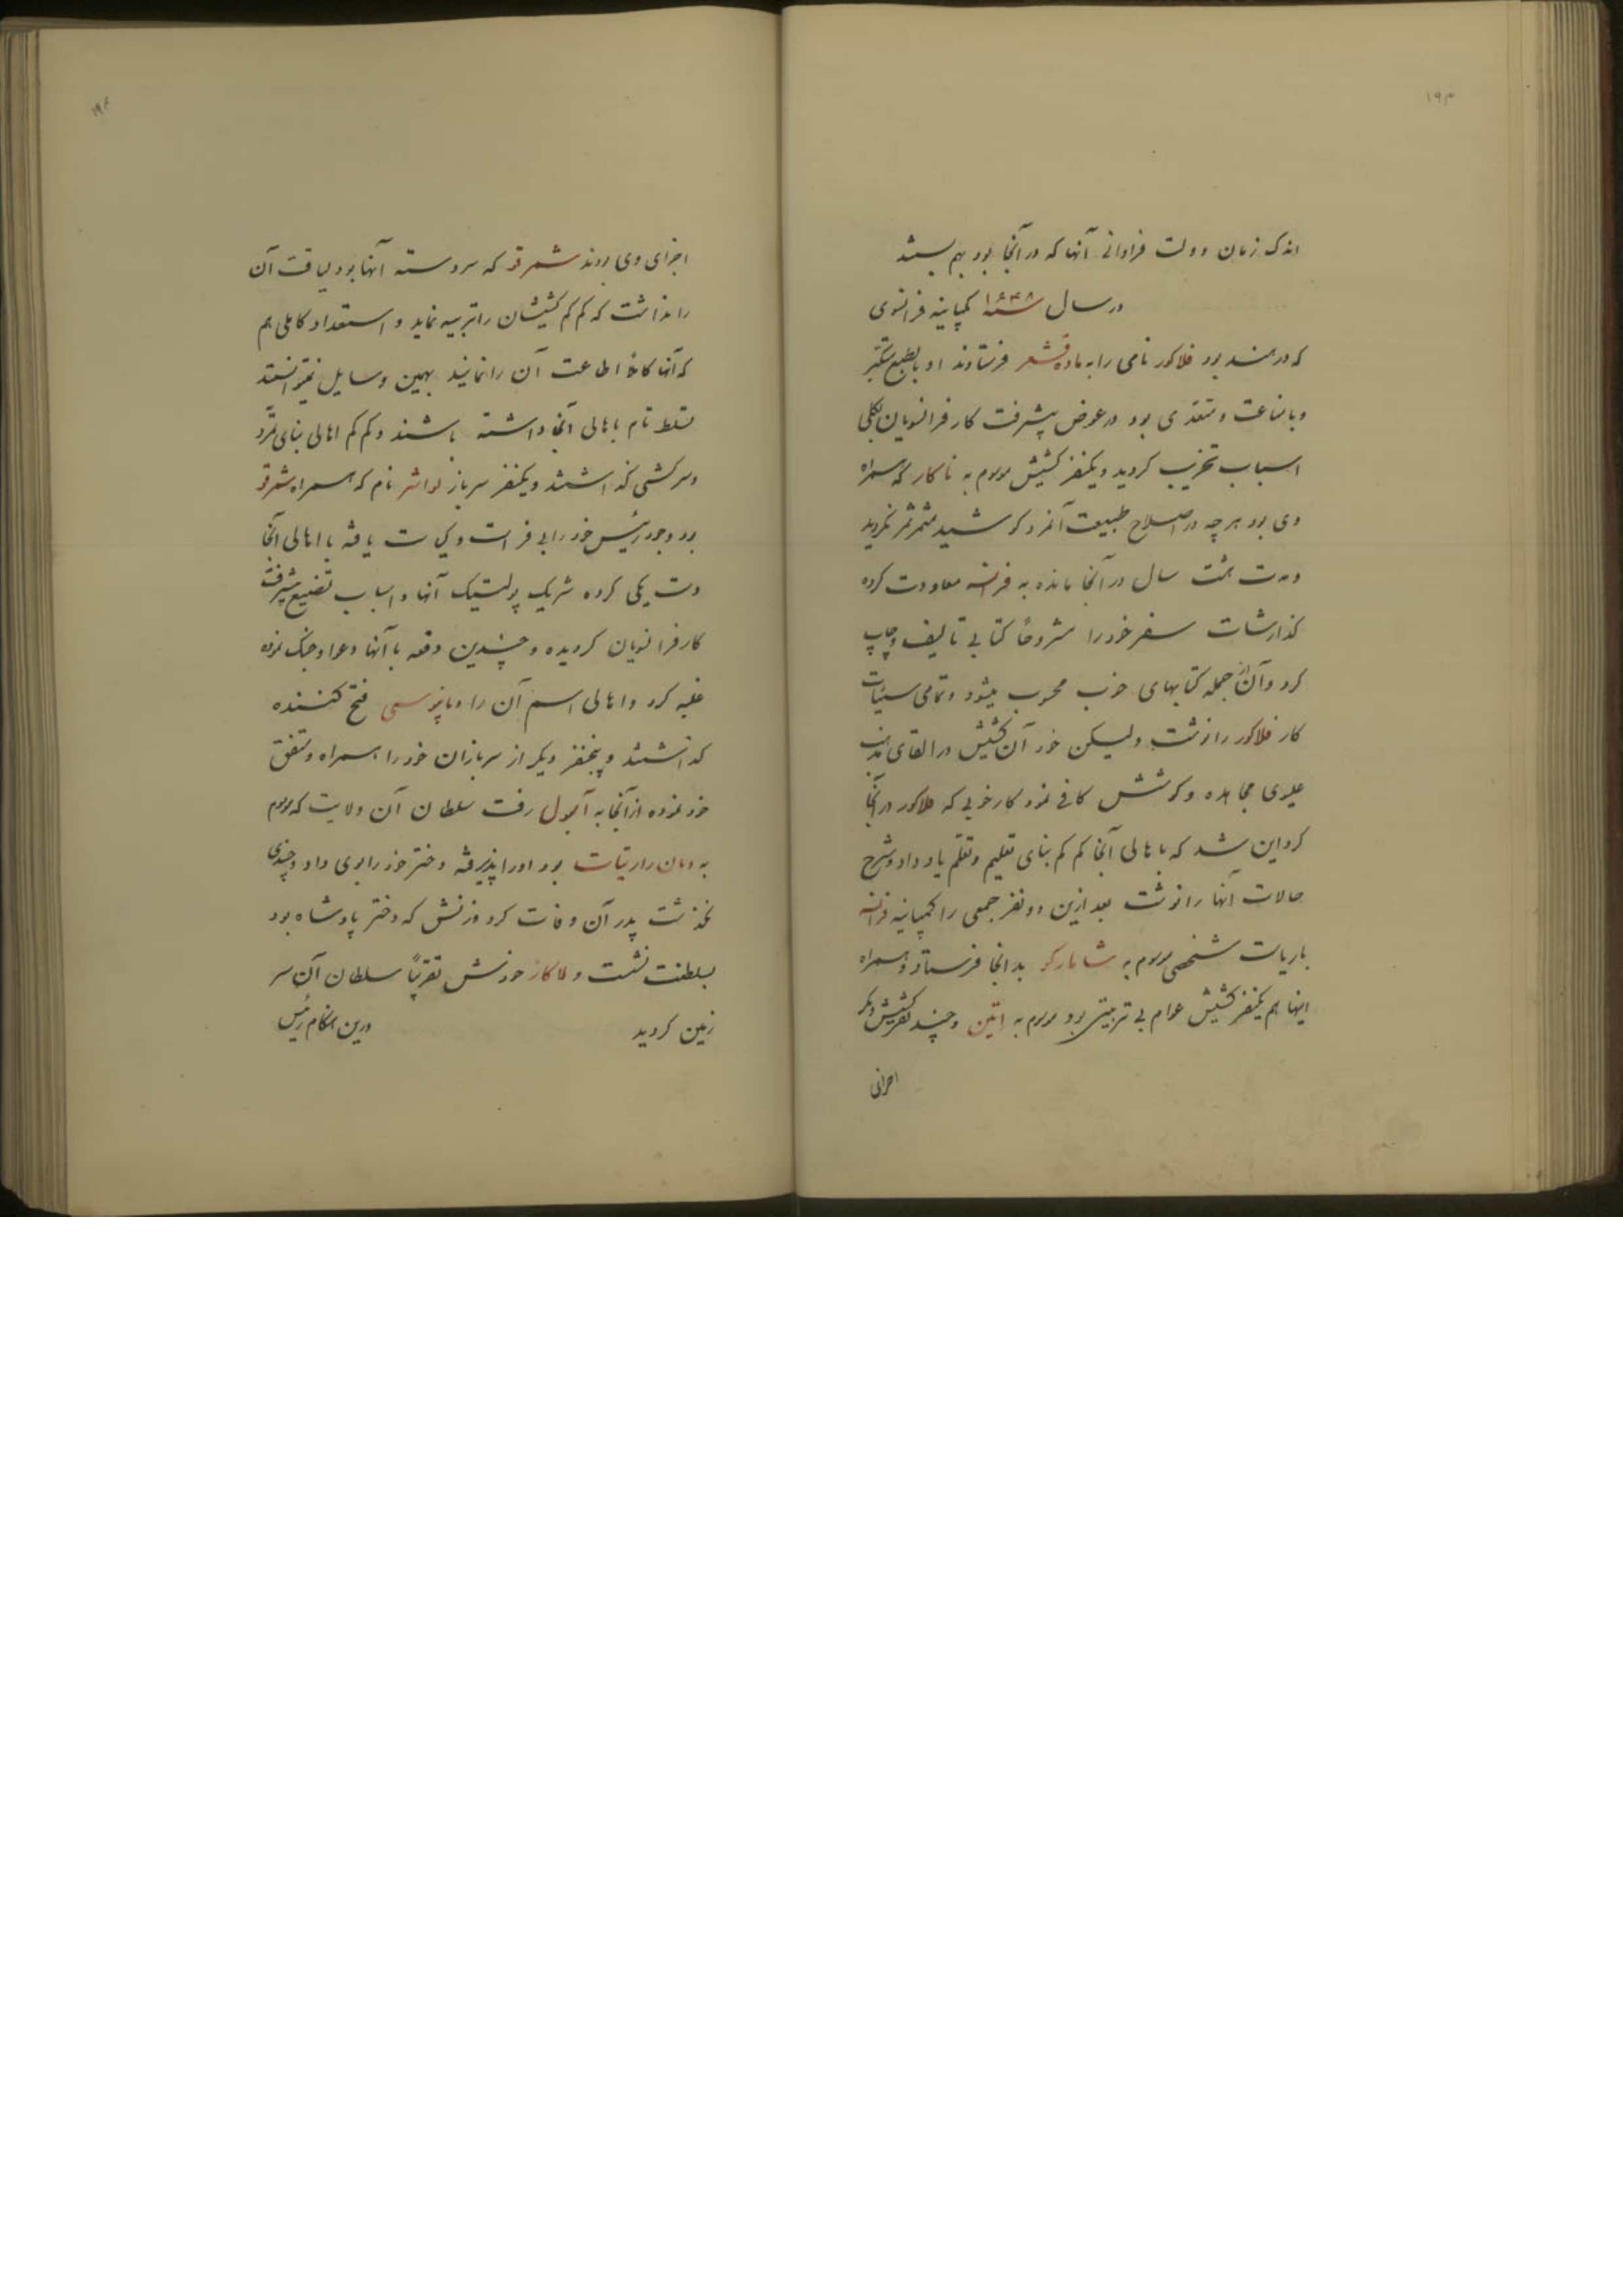 ۱۹۳
اندک زمان دولت فراوانی آنها که در آنجا بود بهم بستند
در سال ۱۶۴۸ کمپانیه فرانسوی
که در هند بود فلاکور نامی را به ماده قسقر فرستادند او بالطبع متکبر
و با مناعت و متعدی بود در عوض پیشرفت کار فرانسویان بکلی
اسباب تخریب گردید و یکنفر کشیش موسوم به ناکار که همراه
وی بود هر چه در اصلاح طبیعت آنمرد کوشید مثمر ثمر نگردید
و مدت هشت سال در آنجا مانده به فرانسه معاودت کرده
گذارشات سفر خود را مشروحاً کتابی تألیف و چاپ
کرد و آن از جمله کتابهای خوب محسوب میشود و تمامی سیئات
کار فلاکور را نوشت ولیکن خود آن کشیش در القای مذهب
عیسوی مجاهده و کوشش کافی نمود کار خوبی که فلاکور در آنجا
کرد این شد که با هالی آنجا کم کم بنای تعلیم و تعلم یاد داد و شرح
حالات آنها را نوشت بعد ازین دو نفر جمعی را کمپانیه فرانسه
بریاست شخصی موسوم به شامارکو بدانجا فرستاد و همراه
اینها هم یکنفر کشیش عوام بی تربیتی بود موسوم به اتین و چند نفر کشیش دیگر
اجزای
۱۹۴
اجزای وی بودند شمرقو که سر دسته آنها بود لیاقت آن
را نداشت که کم کم کشیشان را تربیه نماید و استعداد کاملی هم
که آنها کاملاً اطاعت آن را نمایند بهمین وسایل نمیتوانستند
تسلط تام با هالی آنجا داشته باشند و کم کم اهالی بنای تمرد
و سرکشی گذاشتند و یکنفر سرباز لواشر نام که همراه شمرقو
بود وجود رئیس خود را بی فراست و کیاست یافته با اهالی آنجا
دست یکی کرده شریک پولتیک آنها و اسباب تضییع پیشرفت
کار فرانسویان گردیده و چندین دفعه با آنها دعوا و جنگ نموده
غلبه کرد و اهالی اسم آن را فتح کننده
گذاشتند و پنجنفر دیگر از سربازان خود را همراه و متفق
خود نموده از آنجا به آمبول رفت سلطان آن ولایت که موسوم
به دیان راریتات بود او را پذیرفته دختر خود را بوی داد و چندی
نگذشت پدر آن وفات کرد و زنش که دختر پادشاه بود
بسلطنت نشست و لاکاز خودش تقریباً سلطان آن سر
زمین گردید درین هنگام رئیس